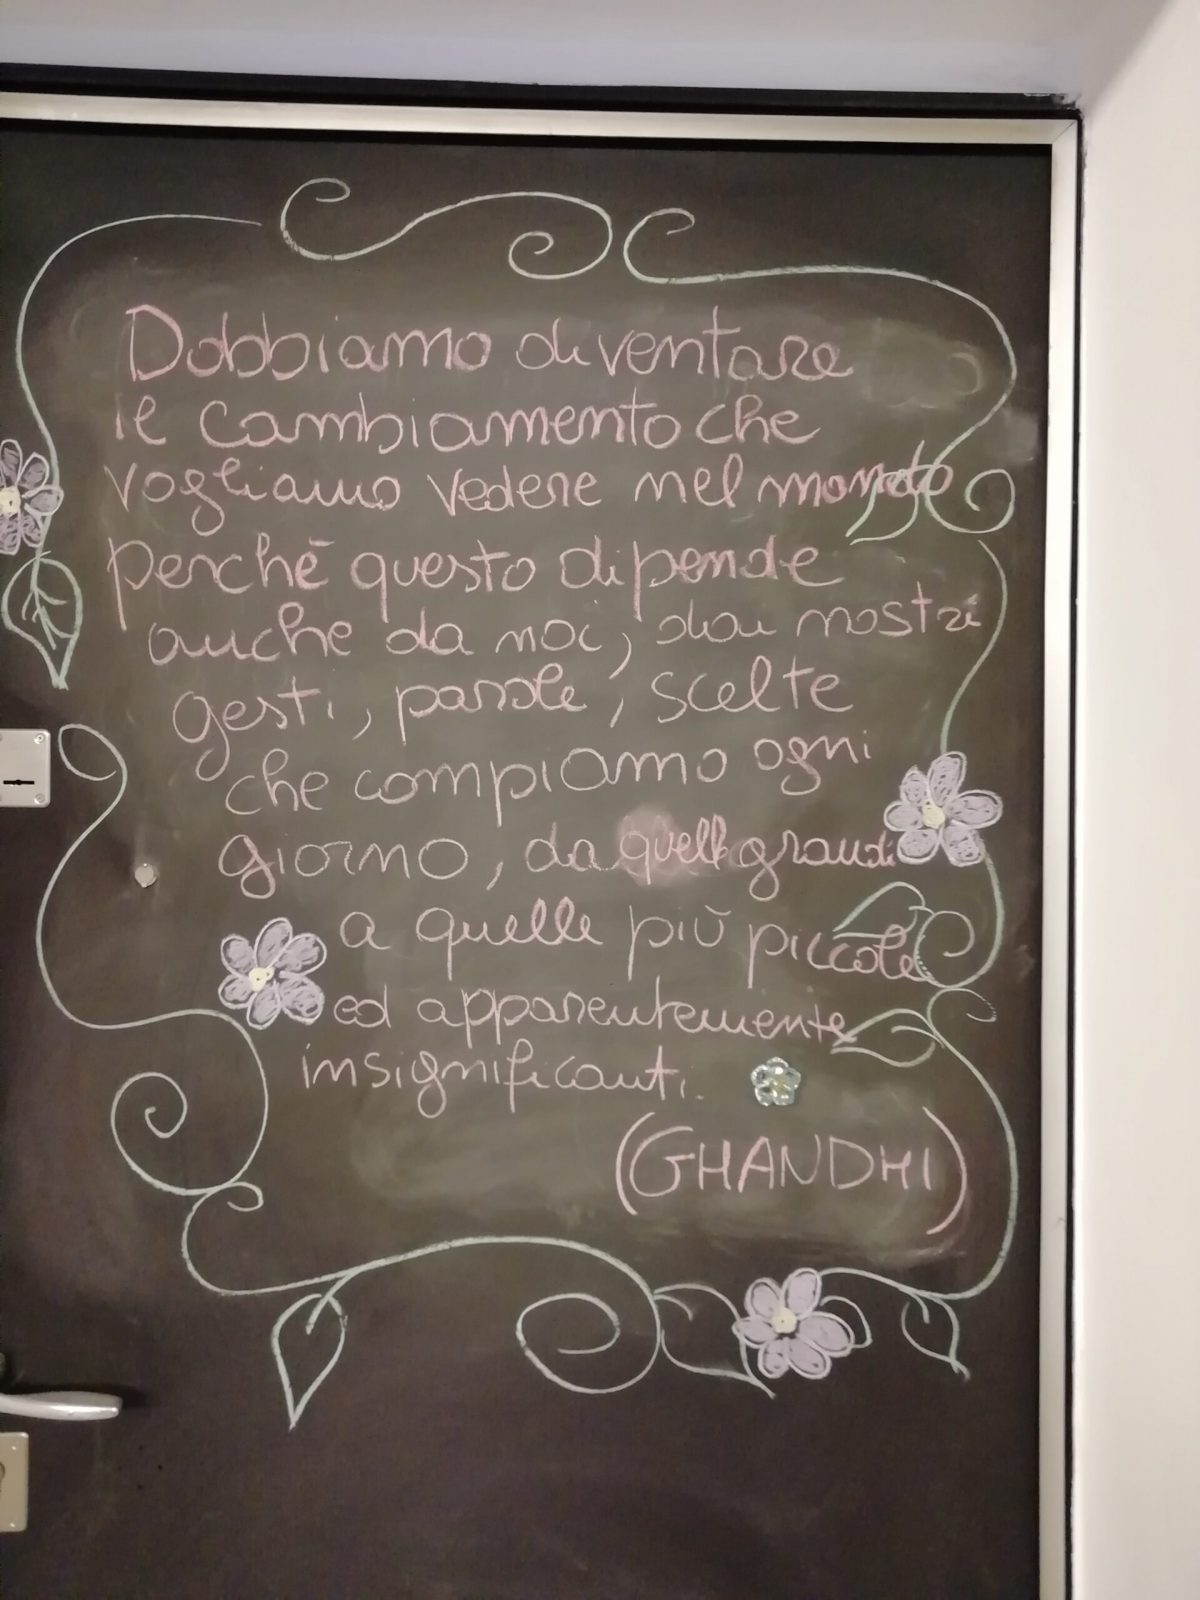 Dobbiamo diventare
il cambiamento che
vogliamo vedere nel mondo
perchè questo dipende
anche da noi, dai nostri
gesti, parole, scelte
che compiamo ogni
giorno, da quelle grandi
a quelle più piccole
ed apparentemente
insignificanti.
(GHANDHI)